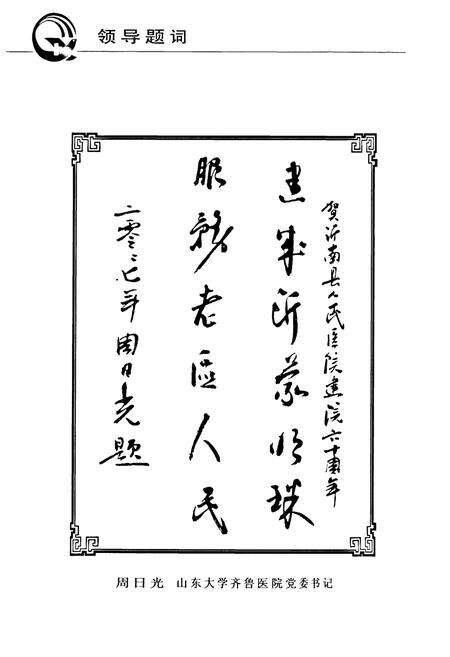 领导题词
贺沂南县人民医院建院六十周年
建成沂蒙明珠
服務老區人民
二零零七年周日光题
周日光 山东大学齐鲁医院党委书记